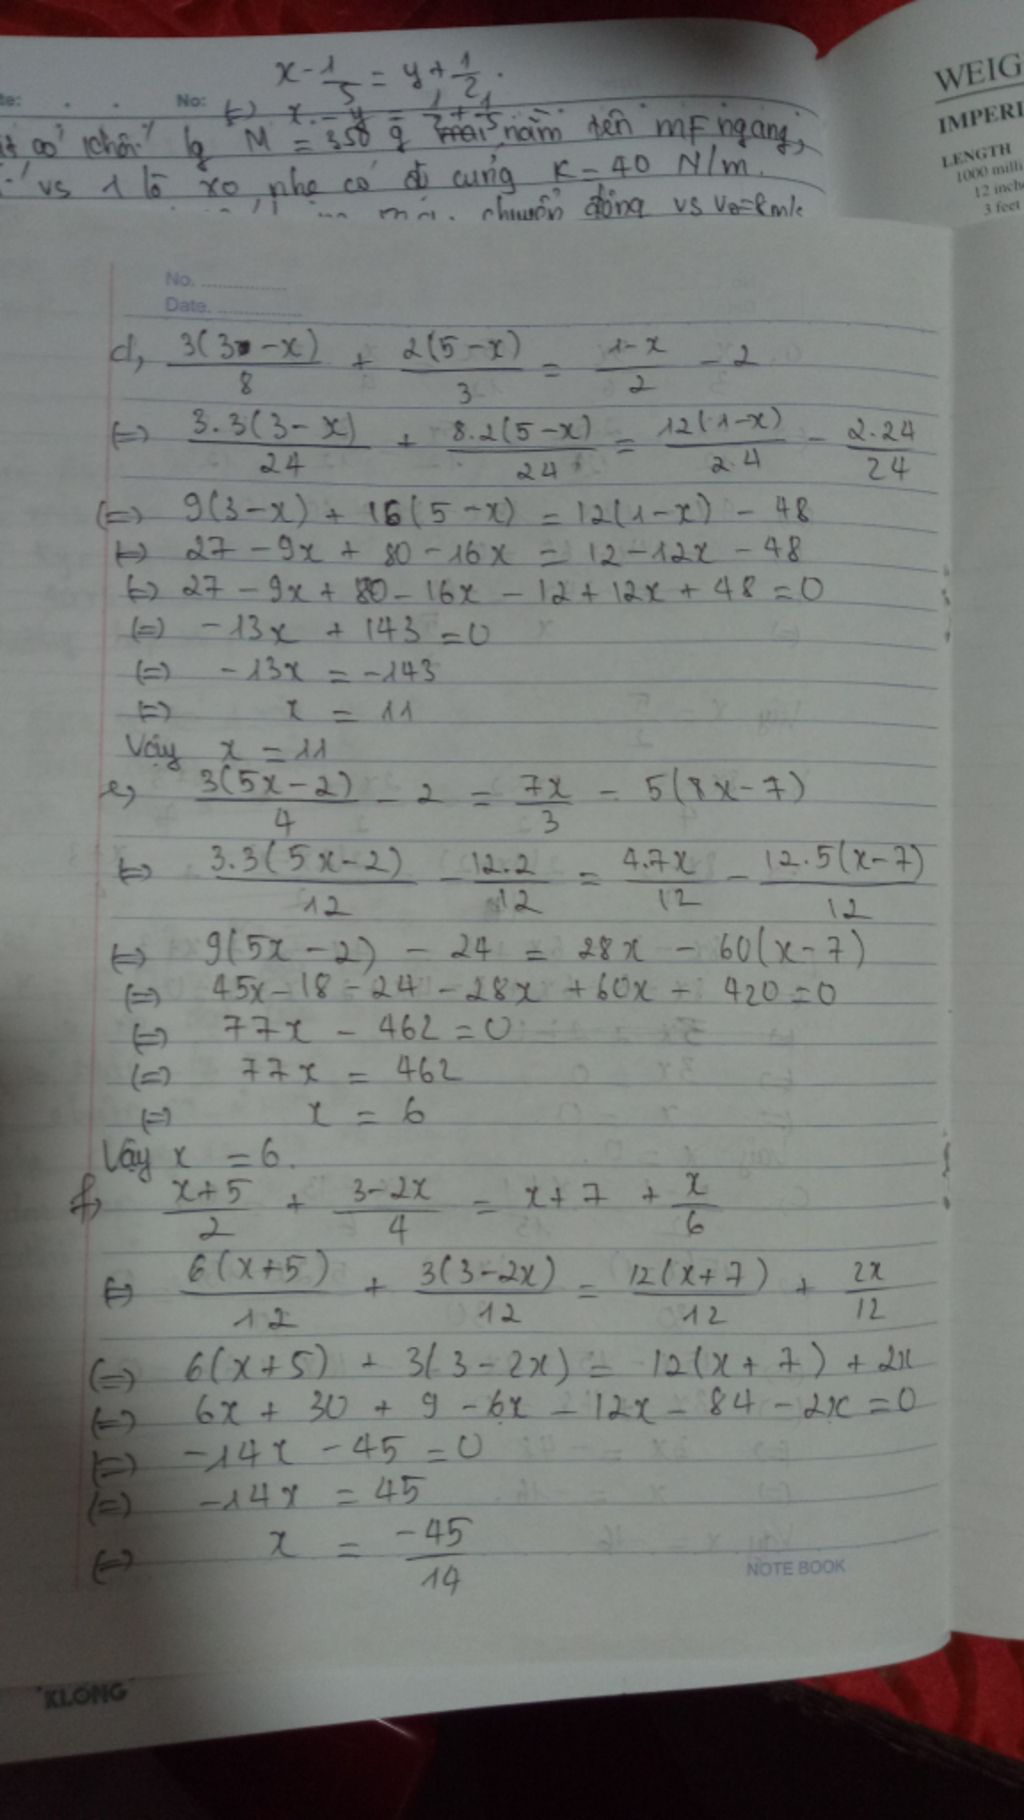 x - 1/5 = y + 1/2.
te: . . No: (=) x - y = 1/2 + 1/5
có khối lg M = 350 g nằm trên mF ngang,
vs 1 lò xo nhẹ có độ cứng K = 40 N/m.
chuyển động vs v₀=2m/s
WEIG
IMPERI
LENGTH
1000 milli
12 inch
3 feet
No.
Date.
d, 3(3-x)/8 + 2(5-x)/3 = 1-x/2 - 2
(=) 3.3(3-x)/24 + 8.2(5-x)/24 = 12(1-x)/2.4 - 2.24/24
(=) 9(3-x) + 16(5-x) = 12(1-x) - 48
(=) 27 - 9x + 80 - 16x = 12 - 12x - 48
(=) 27 - 9x + 80 - 16x - 12 + 12x + 48 = 0
(=) -13x + 143 = 0
(=) -13x = -143
(=) x = 11
Vậy x = 11
e, 3(5x-2)/4 - 2 = 7x/3 - 5(8x-7)
(=) 3.3(5x-2)/12 - 12.2/12 = 4.7x/12 - 12.5(x-7)/12
(=) 9(5x-2) - 24 = 28x - 60(x-7)
(=) 45x - 18 - 24 - 28x + 60x - 420 = 0
(=) 77x - 462 = 0
(=) 77x = 462
(=) x = 6
Vậy x = 6.
f, x+5/2 + 3-2x/4 = x+7 + x/6
(=) 6(x+5)/12 + 3(3-2x)/12 = 12(x+7)/12 + 2x/12
(=) 6(x+5) + 3(3-2x) = 12(x+7) + 2x
(=) 6x + 30 + 9 - 6x - 12x - 84 - 2x = 0
(=) -14x - 45 = 0
(=) -14x = 45
(=) x = -45/14
NOTE BOOK
KLONG